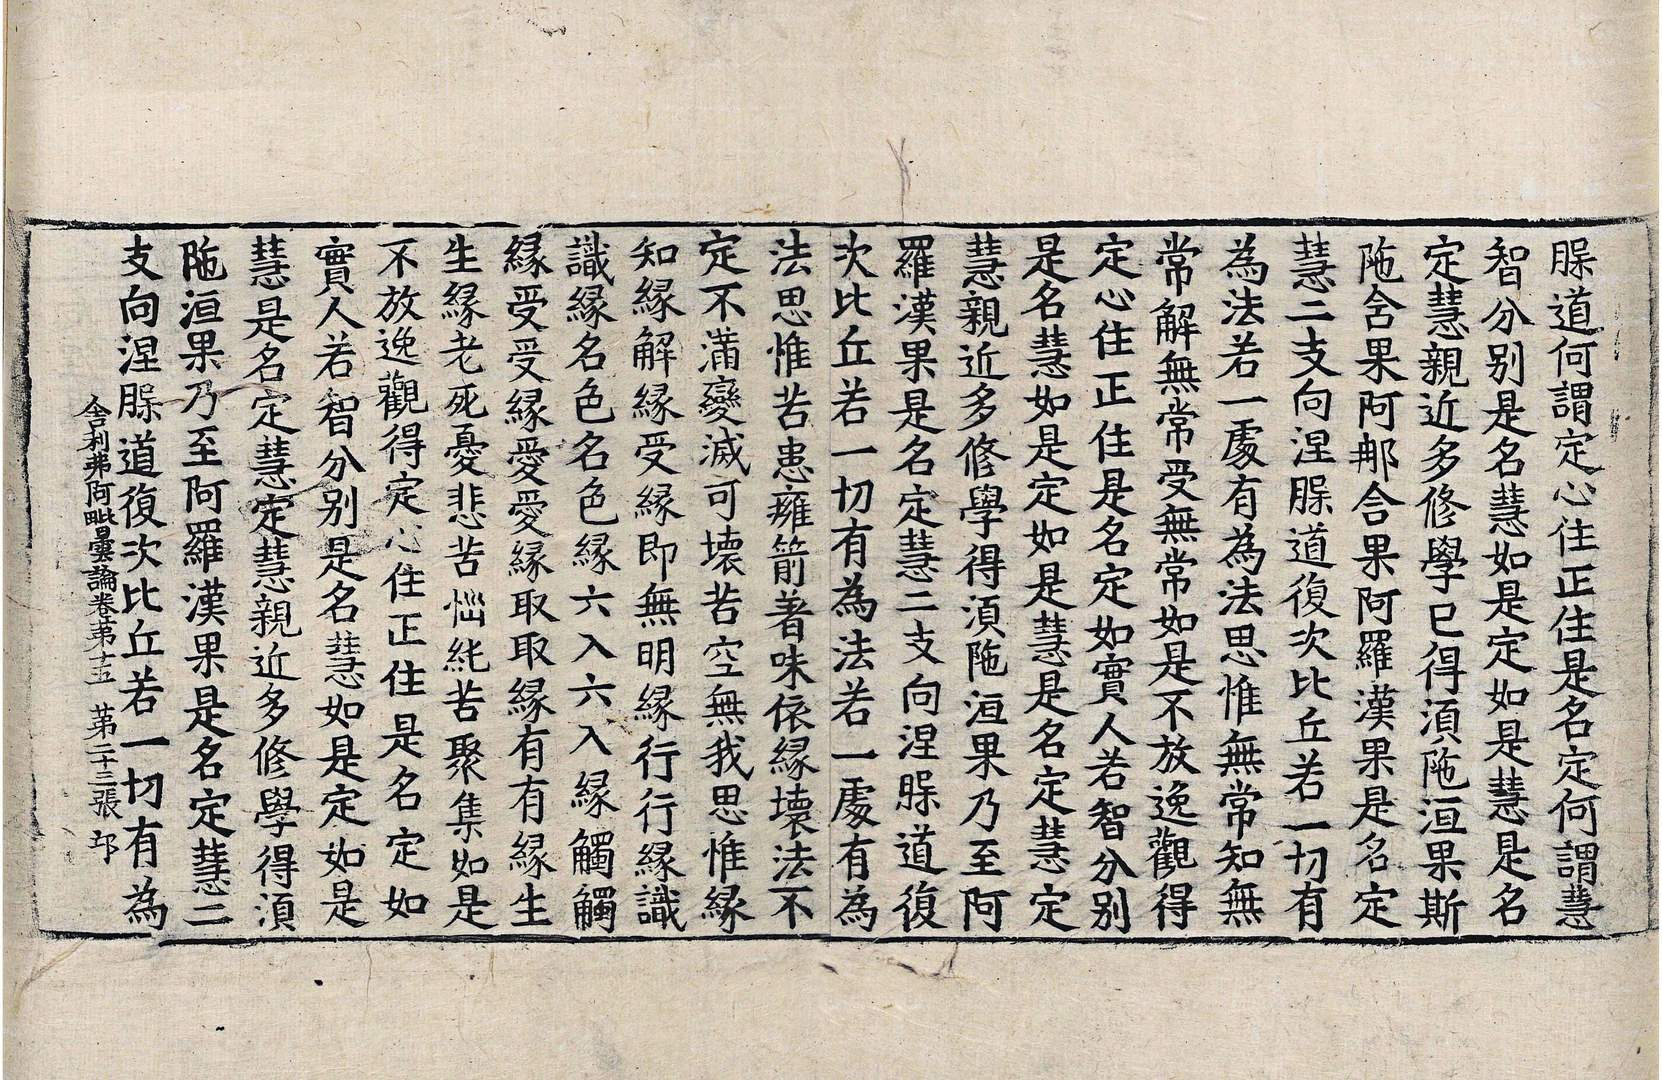 脲道何謂定心住正住是名定何謂慧
智分別是名慧如是定如是慧是名
定慧親近多修學已得湏陁洹果斯
陁含果阿那含果阿羅漢果是名定
慧二支向涅脲道復次比丘若一切有
為法若一處有為法思惟無常知無
常解無常受無常如是不放逸觀得
定心住正住是名定如實人若智分別
是名慧如是定如是慧是名定慧定
慧親近多修學得湏陁洹果乃至阿
羅漢果是名定慧二支向涅脲道復
次比丘若一切有為法若一處有為
法思惟苦患癰箭著味依緣壞法不
定不滿變滅可壞苦空無我思惟緣
知緣解緣受緣即無明緣行行緣識
識緣名色名色緣六入六入緣觸觸
緣受受緣愛愛緣取取緣有有緣生
生緣老死憂悲苦惱純苦聚集如是
不放逸觀得定心住正住是名定如
實人若智分別是名慧如是定如是
慧是名定慧定慧親近多修學得湏
陁洹果乃至阿羅漢果是名定慧二
支向涅脲道復次比丘若一切有為
舍利弗阿毗曇論卷第十五 第二十三張 邙